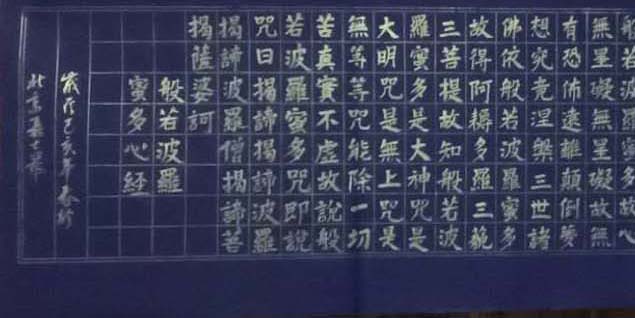 般若波羅蜜多故心
無罣礙無罣礙故無
有恐怖遠離顛倒夢
想究竟涅槃三世諸
佛依般若波羅蜜多
故得阿耨多羅三藐
三菩提故知般若波
羅蜜多是大神咒是
大明咒是無上咒是
無等等咒能除一切
苦真實不虛故說般
若波羅蜜多咒即說
咒曰揭諦揭諦波羅
揭諦波羅僧揭諦菩
揭薩婆訶
般若波羅
蜜多心経
己亥年春
北京